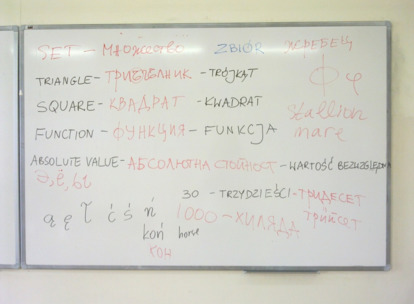 SET - МНОЖЕСТВО ZBIÓR ЖРЕБЕЦ
TRIANGLE - ТРИЪГЪЛНИК - TRÓJKĄT Ф φ
SQUARE - КВАДРАТ - KWADRAT stallion
FUNCTION - ФУНКЦИЯ - FUNKCJA mare
ABSOLUTE VALUE - АБСОЛЮТНА СТОЙНОСТ - WARTOŚĆ BEZWZGLĘDNA
30 - TRZYDZIEŚCI - ТРИДЕСЕТ
ą ę ć ś ń 1000 - ХИЛЯДА трийсет
koń horse
КОН